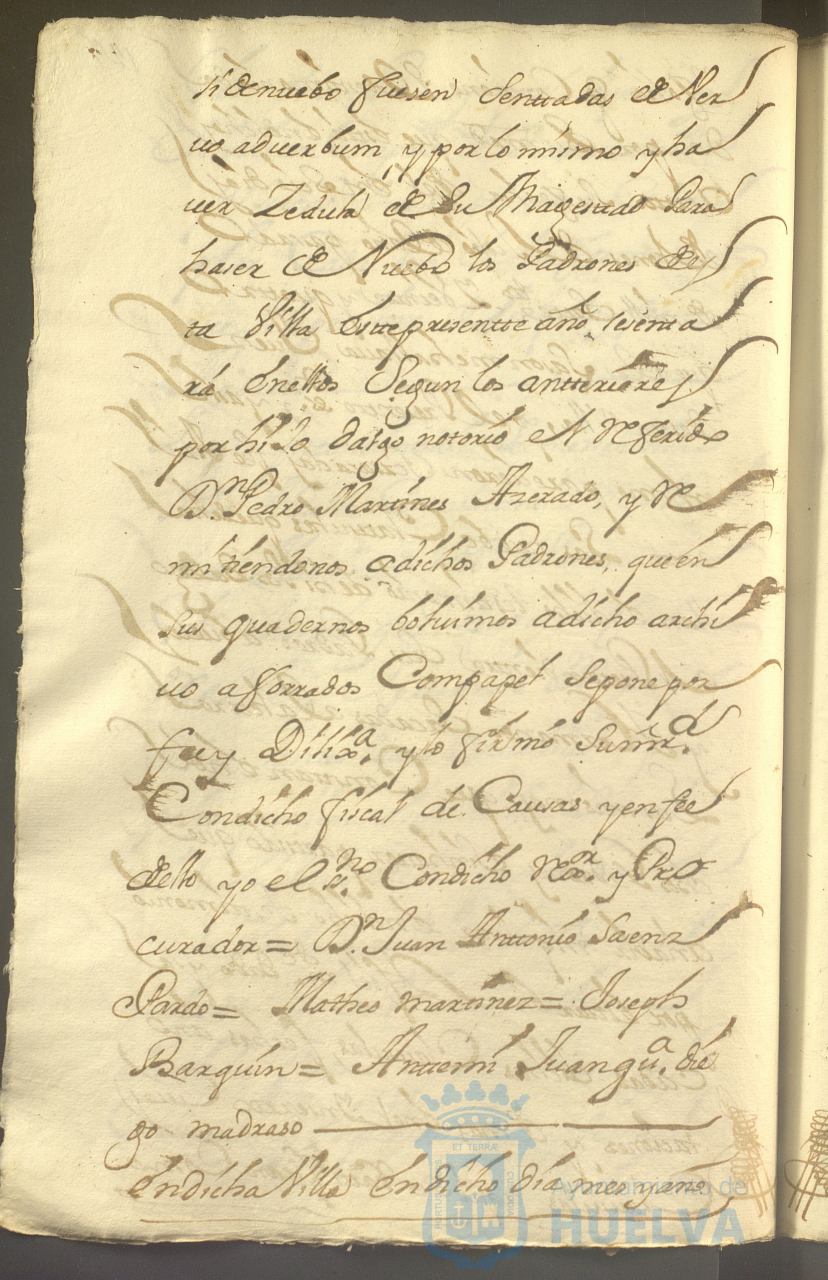 si de nuebo fuesen Senttadas de Ver
vo adverbum, y por lo mismo y ha
ver Zedula de Su Magestad Para
haser de Nuebo los Padrones des
ta Villa Este presentte año, se senta
rá en ellos Segun los antteriores
por hijo dalgo nottorio el referido
D.n Pedro Martines Azerado, y re
mitiendonos a dichos Padrones, que en
sus quadernos bolvimos a dicho archi
vo aforrados Com papel se pone por
fee y Dilix.a y lo firmó Su mr.d
Con dicho fiscal de Causas y en fee
dello yo el s.no Con dicho rex.or y Pro
curador = D.n Juan Anttonio Saenz
Pardo = Matheo martinez = Joseph
Barquin = Antte mi Juan gu.a die
go madraso
en dicha Villa en dicho dia mes y año
Ayuntamiento de
HUELVA